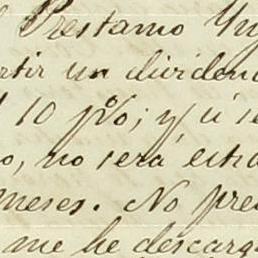 l Prestamo Yng
rtir un dividend
l 10 p%; y si se
o, no será extra
meses. No pre
me he descarg